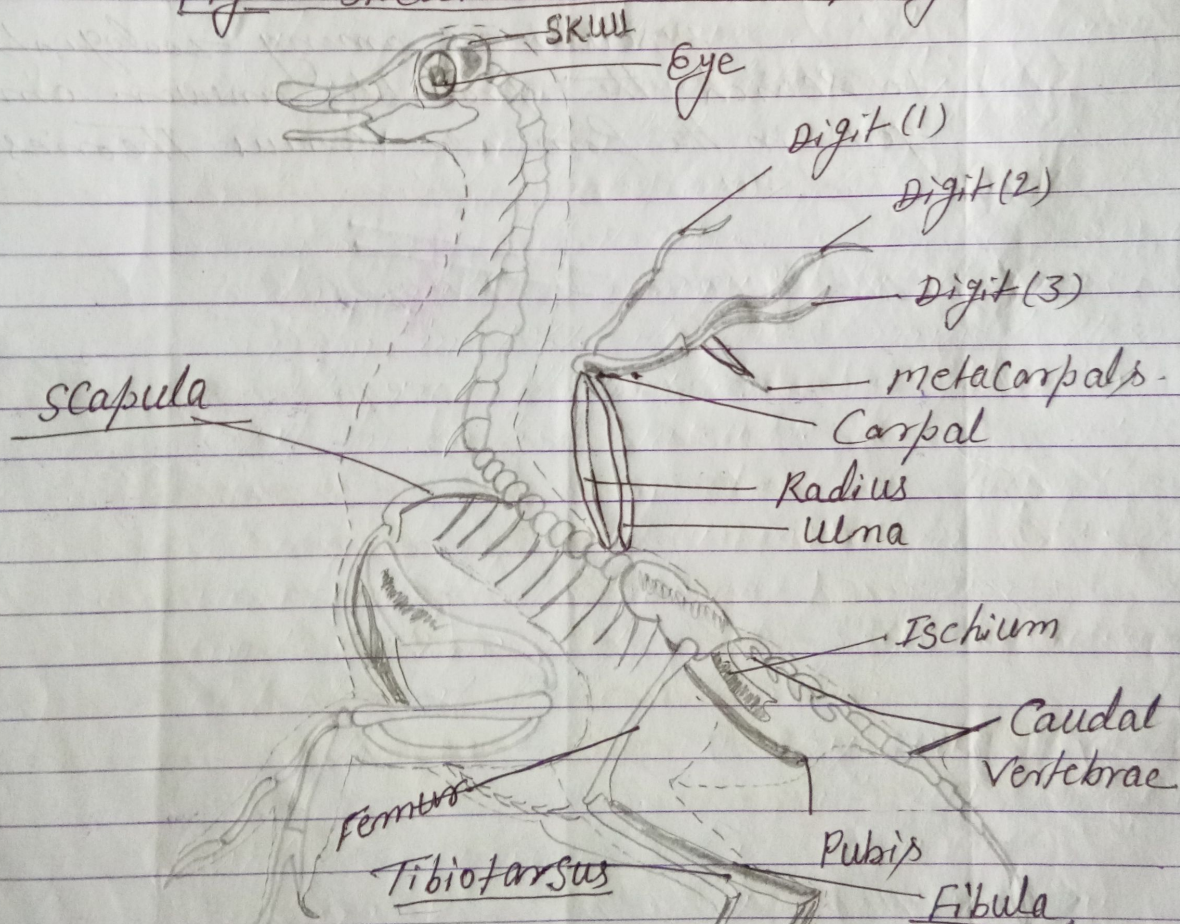 Fig
Skull
Eye
Digit (1)
Digit (2)
Digit (3)
Scapula
metacarpals.
Carpal
Radius
Ulna
Ischium
Caudal
Vertebrae
Femur
Pubis
Tibiotarsus
Fibula